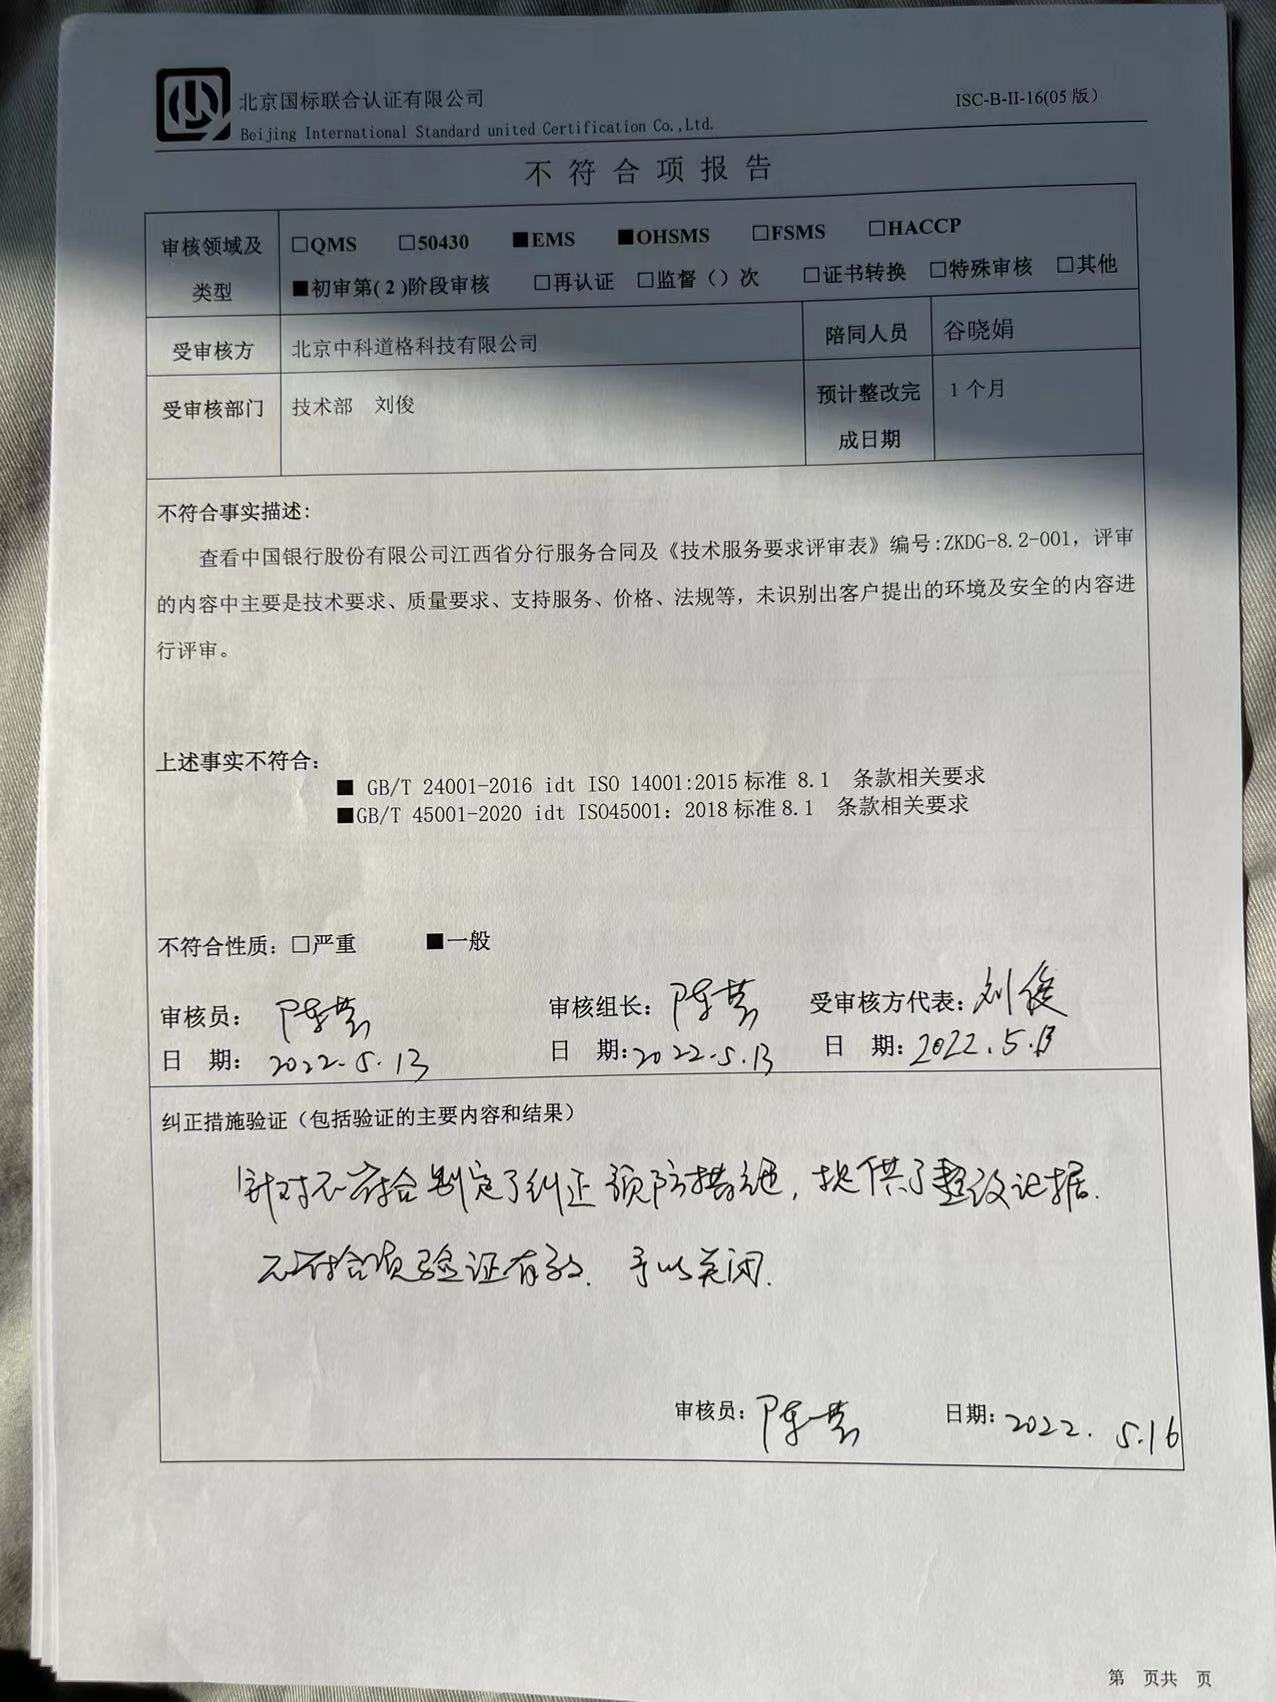 北京国标联合认证有限公司
ISC-B-II-16(05 版)
Beijing International Standard united Certification Co.,Ltd.
不符合项报告
审核领域及类型
□QMS □50430 ■EMS ■OHSMS □FSMS □HACCP
■初审第(2)阶段审核 □再认证 □监督（）次 □证书转换 □特殊审核 □其他
受审核方 北京中科道格科技有限公司 陪同人员 谷晓娟
受审核部门 技术部 刘俊 预计整改完成日期 1个月
不符合事实描述：
查看中国银行股份有限公司江西省分行服务合同及《技术服务要求评审表》编号:ZKDG-8.2-001，评审
的内容中主要是技术要求、质量要求、支持服务、价格、法规等，未识别出客户提出的环境及安全的内容进
行评审。
上述事实不符合：
■ GB/T 24001-2016 idt ISO 14001:2015标准 8.1 条款相关要求
■GB/T 45001-2020 idt ISO45001：2018标准8.1 条款相关要求
不符合性质：□严重 ■一般
审核员： 审核组长： 受审核方代表：刘俊
日 期：2022.5.13 日 期：2022.5.13 日 期：2022.5.13
纠正措施验证（包括验证的主要内容和结果）
针对不符合制定了纠正预防措施，提供了整改证据.
不符合项验证有效.予以关闭.
审核员： 日期：2022.5.16
第 页共 页